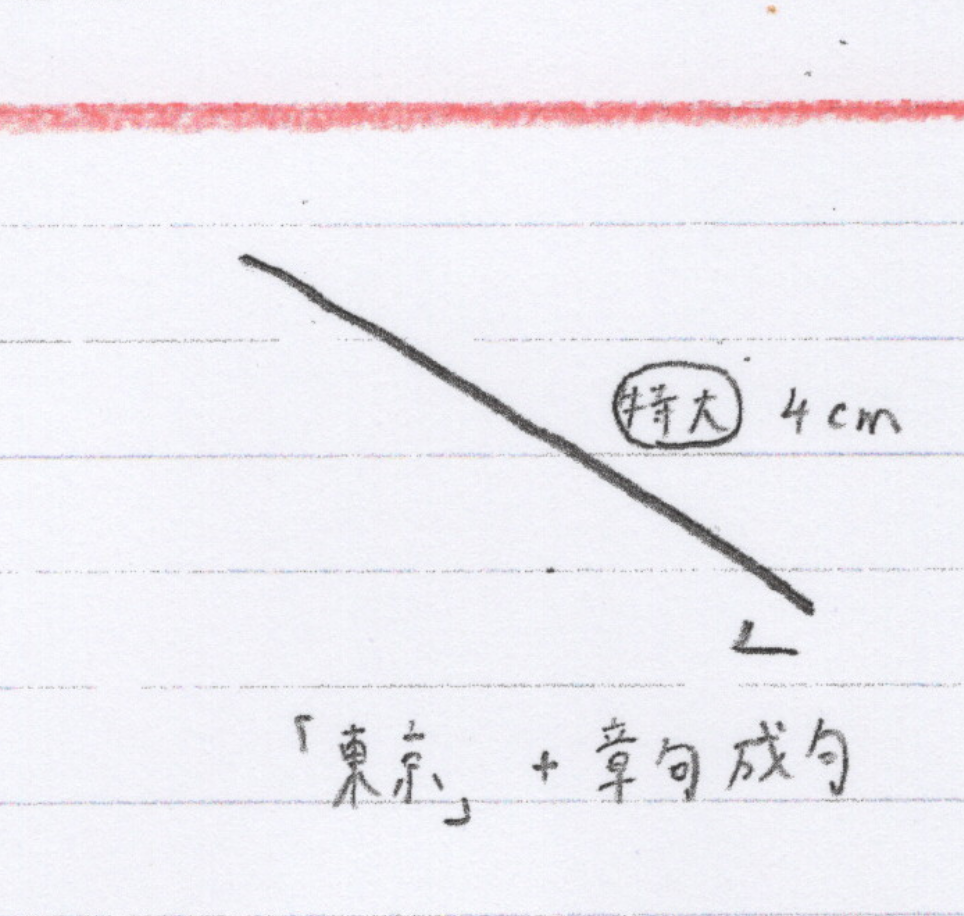 特大 4cm
「東京」+章句成句